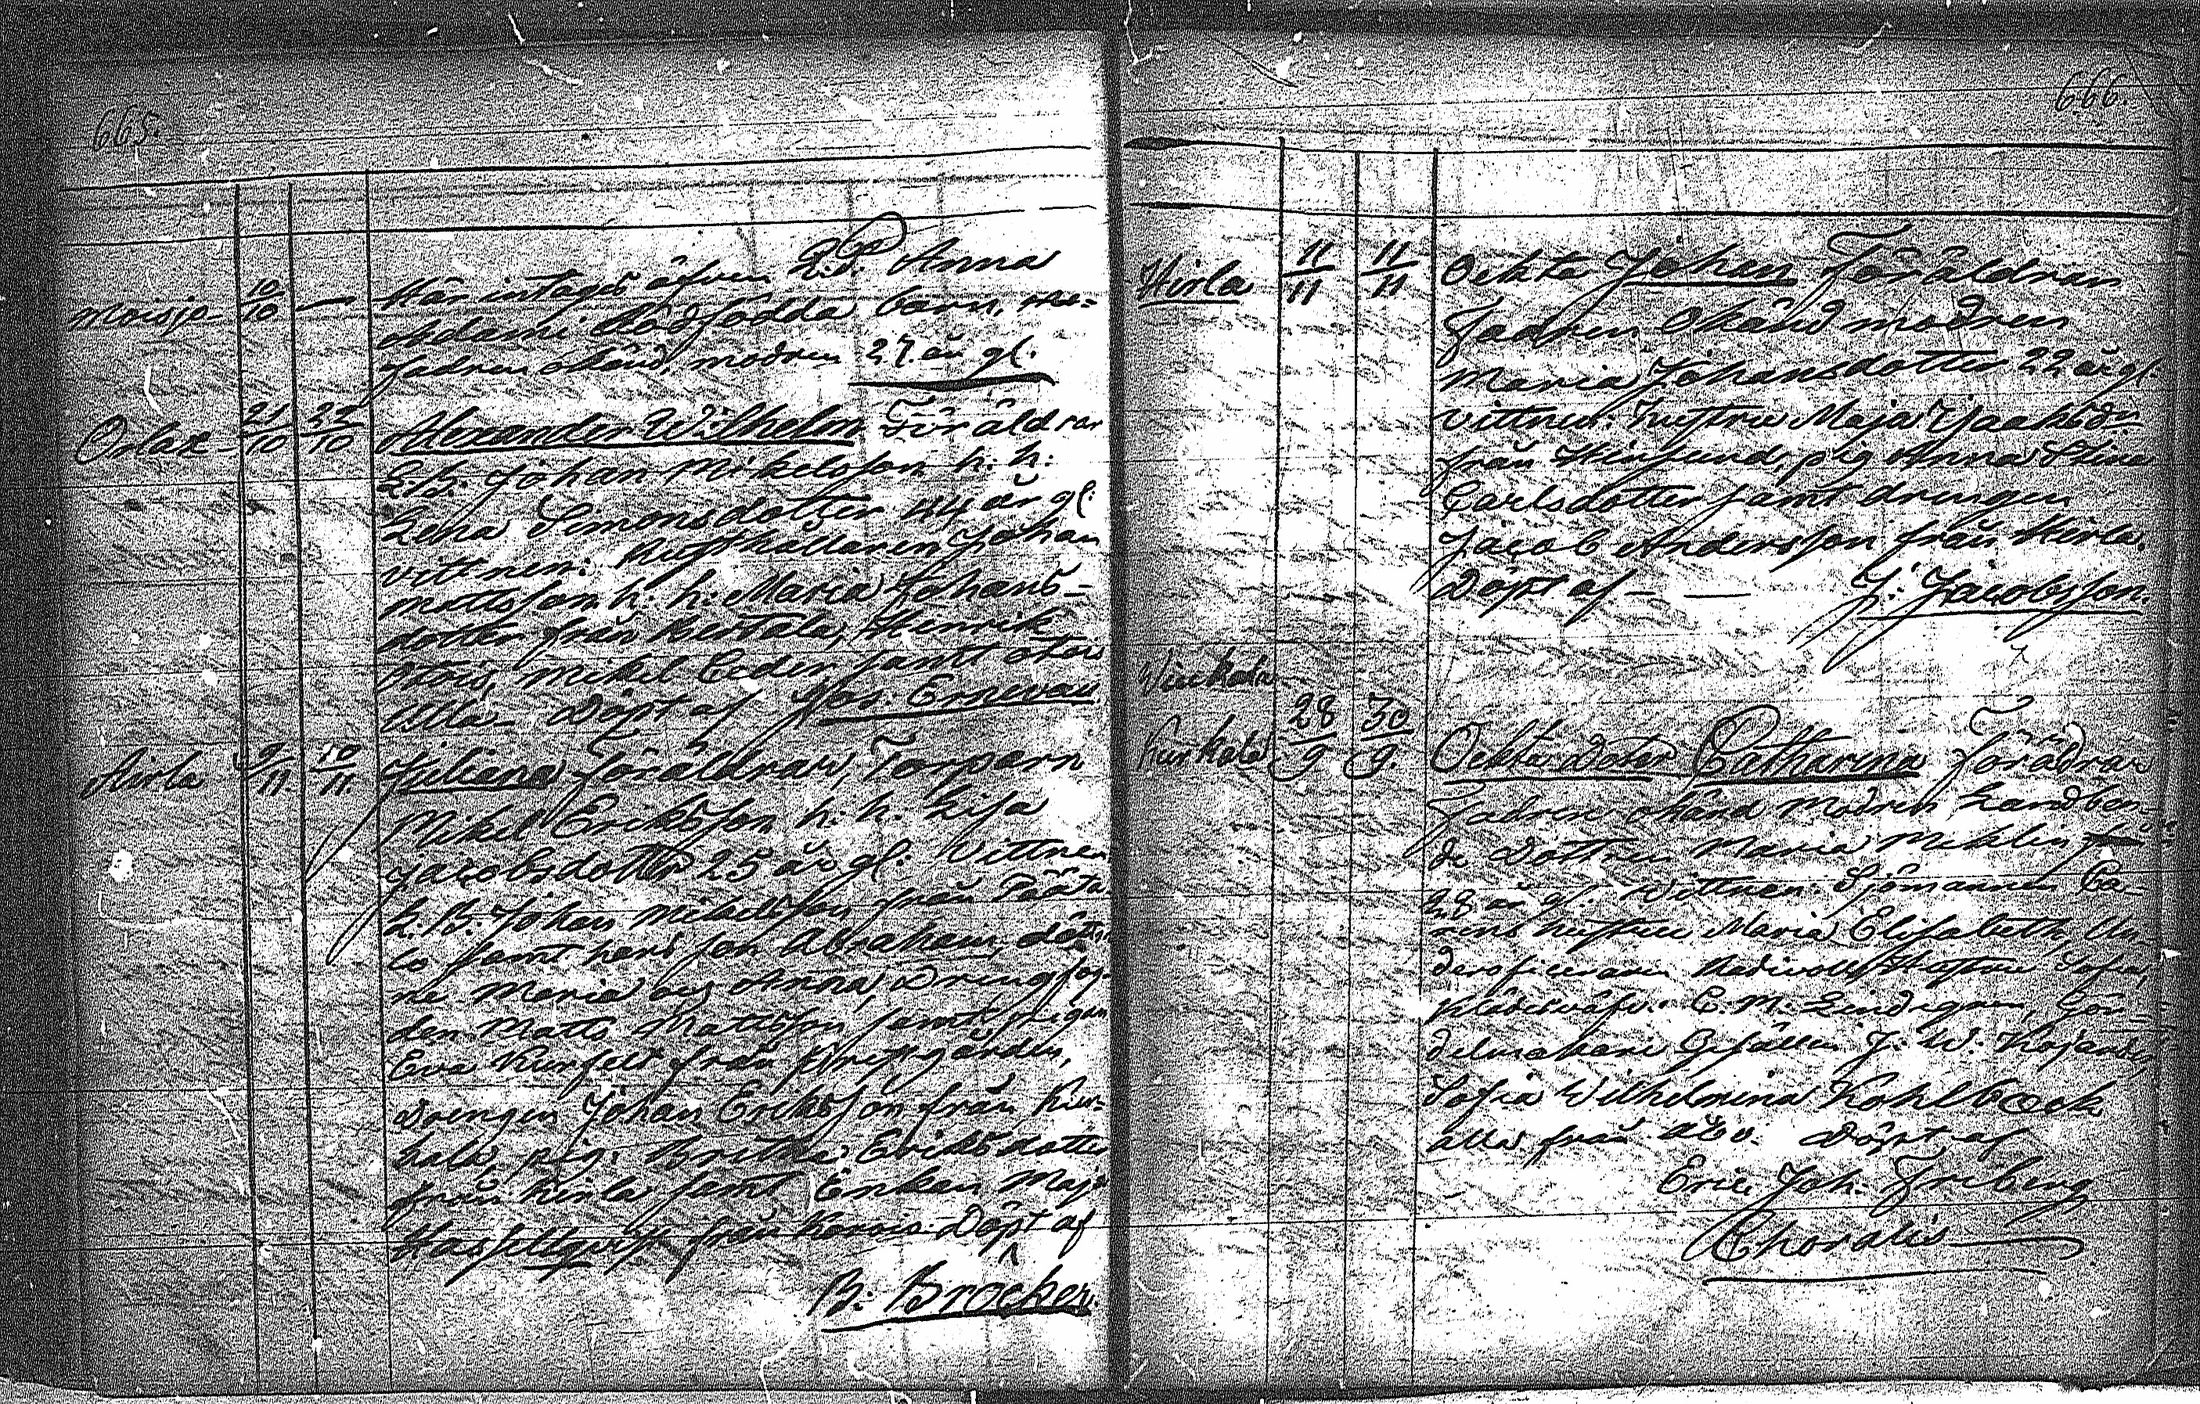 665.
Moisjo 10/10 — Här intages äfven Q.P. Anna
Adami dödfödda barn,
fadren okänd, modren 27 år gl.
21/10 22/10 Alexander Wilhelm Föräldrar
L.B. Johan Mikelsson h. h.
Lena Simonsdotter 44 år gl.
vittnen: Rusthållaren Johan
Mattsson h. h. Maria Johans-
dotter från Henrik
Mikel Ceder samt
Ulla Döpt af Jos:
Airla 9/11. 10/11. Juliana Föräldrar, Torparn
Mikel Eriksson h. h. Lisa
Jacobsdotter 25 år gl. Vittnen
L.B. Johan Mikelsson från Pääta-
lo samt hans son Abraham,
ne Maria och Anna, Dreng
den Matts Mattsson samt pigan
Eva från Prestgården,
Drengen Johan Eriksson från
kala, pig: Britha Eriksdotter
från Kirla samt Enkan Maj:
från Döpt af
B: Bröcker.
666.
Kirla 11/11 11/11 Oekta Johan Föräldrar
Fadren Okänd modren
Maria Johansdotter 22 år gl.
vittnen: hustru Maja
från pig Anna Stina
Carlsdotter samt drengen
Jacob Andersson från Kirla.
Döpt af — — J: Jacobsson.
28/9 30/9. Oekta Doter Catharina Föräldrar
Fadren okänd Modren Landbon-
de Dottren Maria Mehlin
28 år gl. Wittnen Sjömannen Ca-
rens hustru Maria Elisabeth, Un-
derofficeraren hustru Sofia,
C. M. Lindegren,
Gesällen J. W.
Sofia Wilhelmina Kohlbeck
alla från Åbo. Döpt af
Eric Joh. Friberg
Choralis